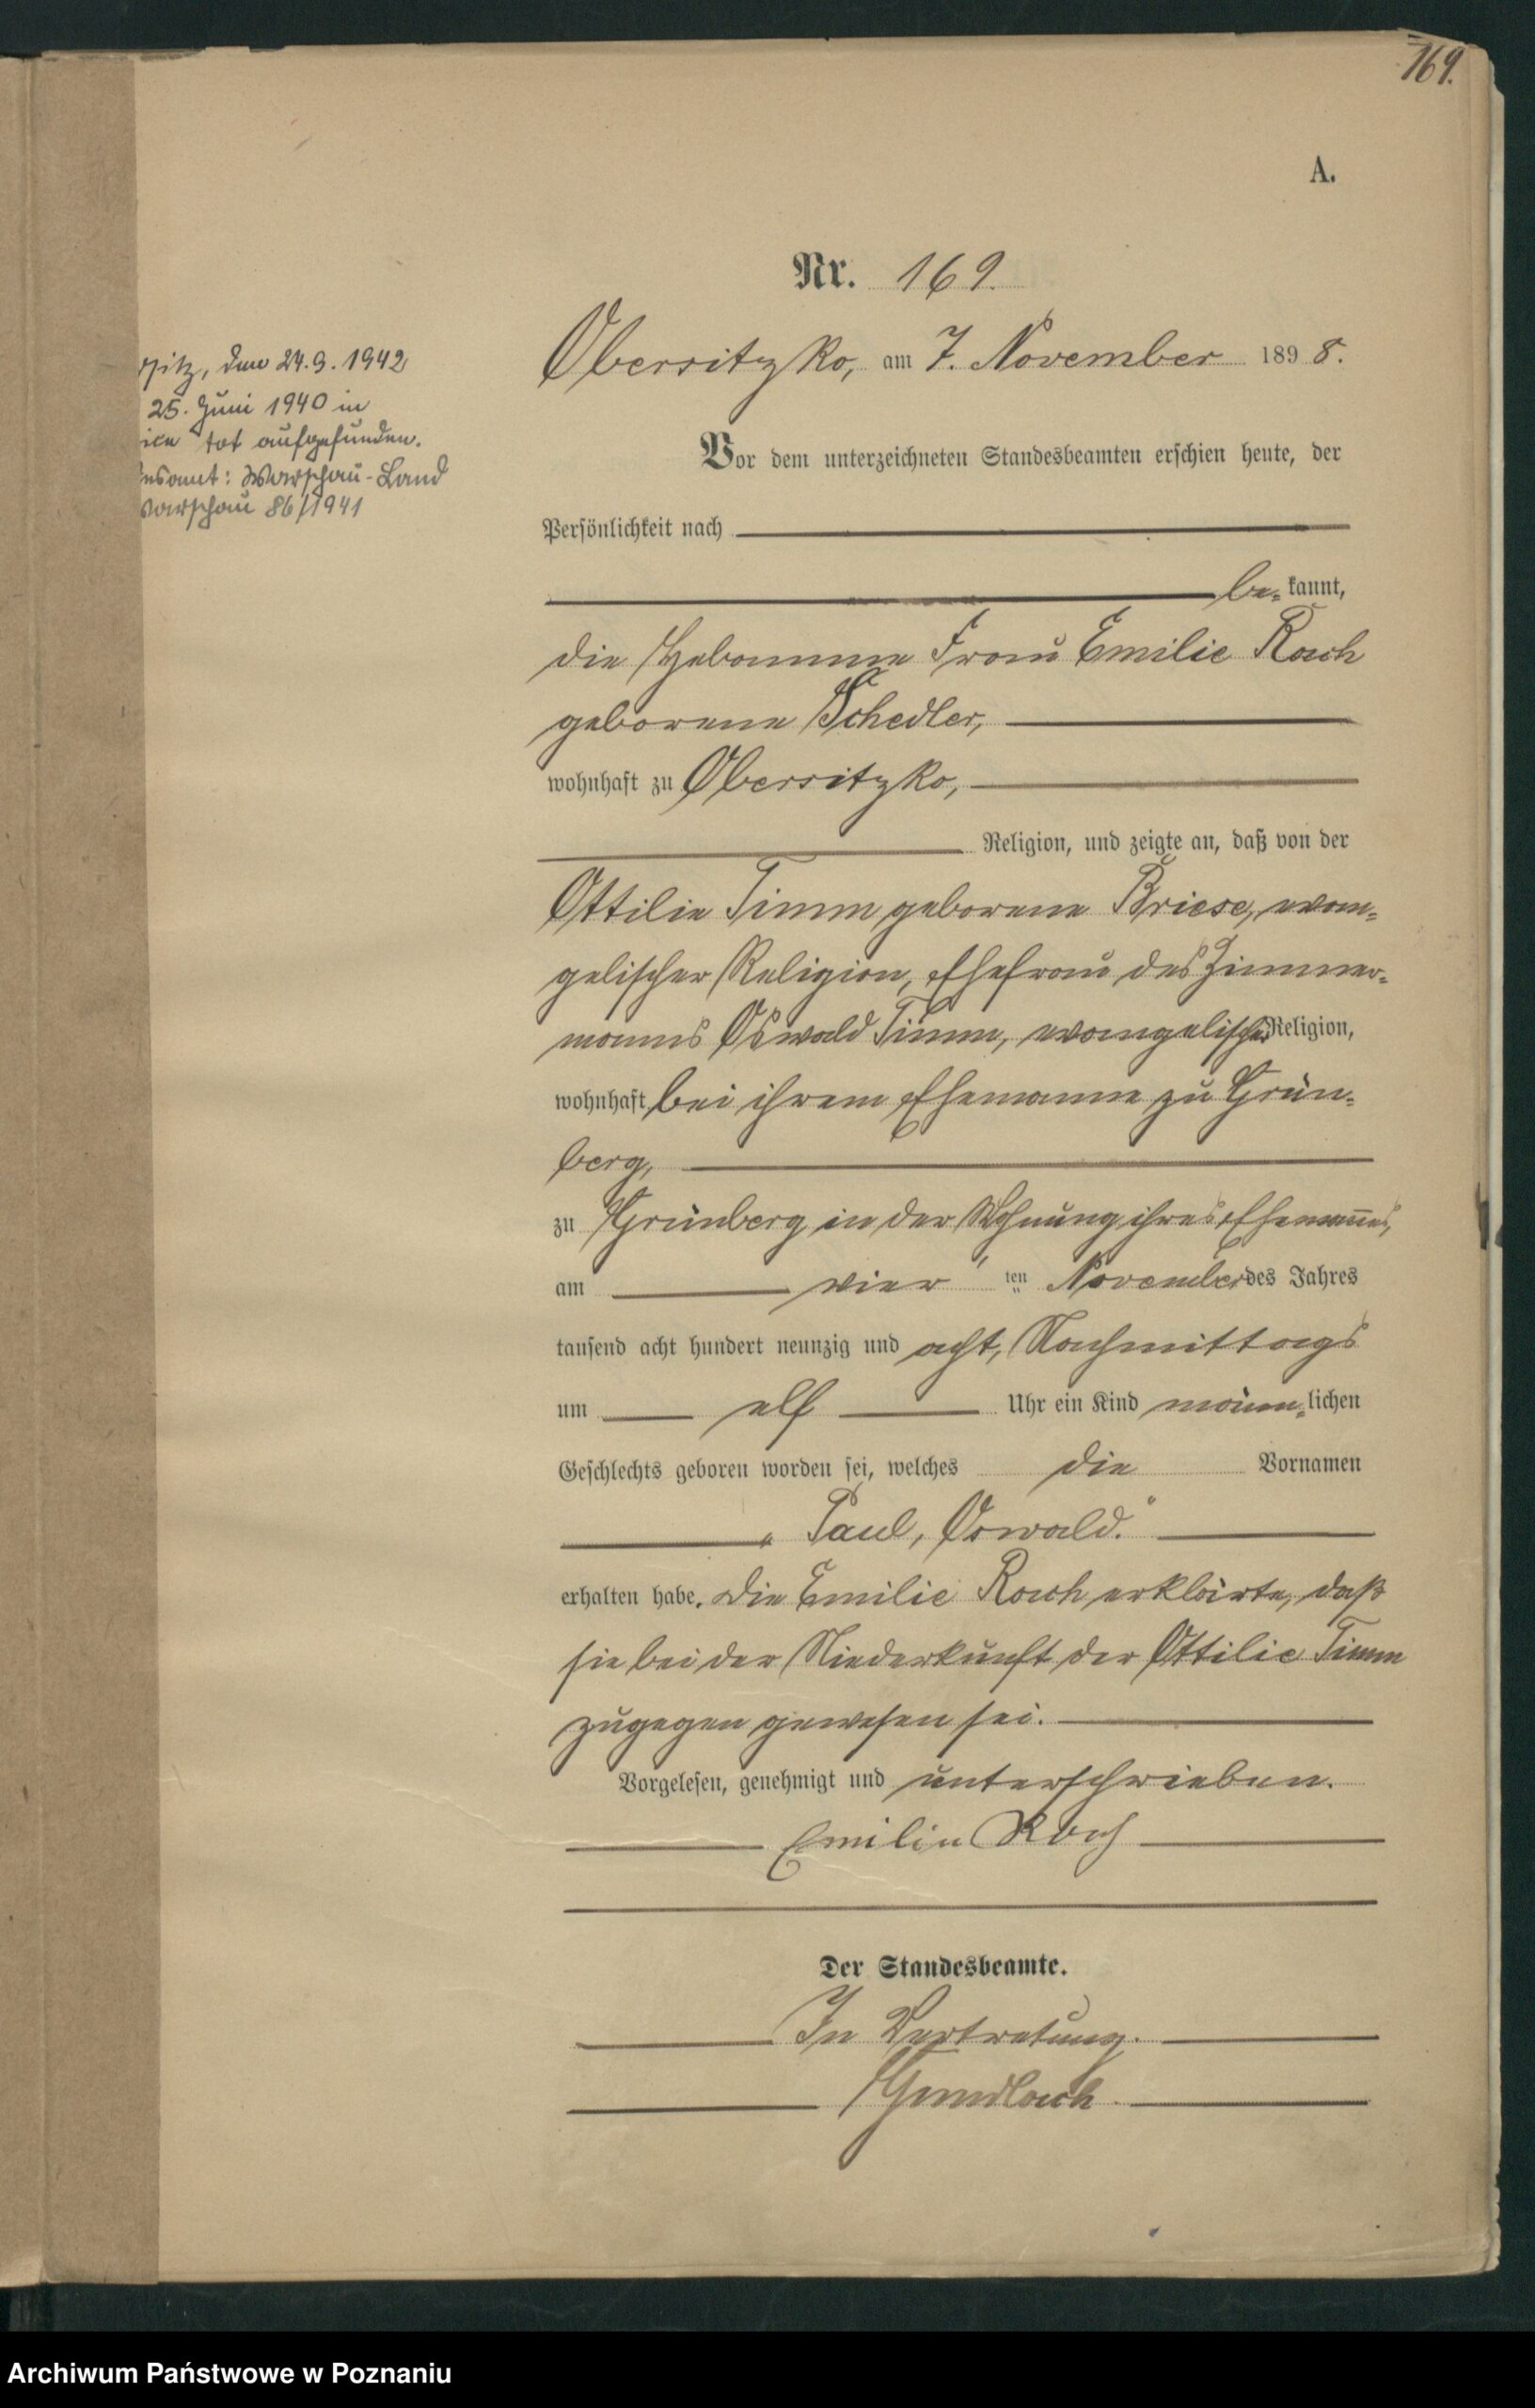 169.
A.
Nr. 169.
Obersitzko, am 7. November 1898.
den 24.9.1942
25. Juni 1940 in
tot aufgefunden.
Warschau-Land
86/1941
Vor dem unterzeichneten Standesbeamten erschien heute, der
Persönlichkeit nach
be- kannt,
die Hebamme Frau Emilie Koch
geborene Schedler,
wohnhaft zu Obersitzko,
Religion, und zeigte an, daß von der
Ottilie Timm geborene Briese, evan-
gelischer Religion, Ehefrau des Zimmer-
manns Oswald Timm, evangelischer Religion,
wohnhaft bei ihrem Ehemanne zu Grün-
berg,
zu Grünberg in der Wohnung ihres Ehemannes,
am vier ten November des Jahres
tausend acht hundert neunzig und acht, Nachmittags
um elf Uhr ein Kind männ- lichen
Geschlechts geboren worden sei, welches die Vornamen
„Paul, Oswald."
erhalten habe. Die Emilie Koch erklärte, daß
sie bei der Niederkunft der Ottilie Timm
zugegen gewesen sei.
Vorgelesen, genehmigt und unterschrieben.
Emilie Koch
Der Standesbeamte.
In Vertretung.
Gundlach
Archiwum Państwowe w Poznaniu